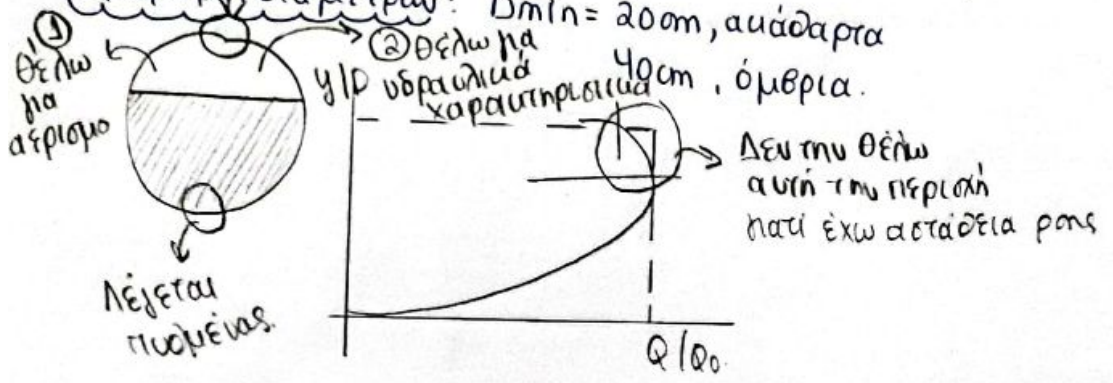 διαμέτρων: Dmin = 20cm, ακάθαρτα
40cm, όμβρια.
① θέλω
για
αερισμο
② θέλω για
υδραυλικά
χαρακτηριστικά
y/D
Δεν την θέλω
αυτή την περιοχή
γιατί έχω αστάθεια ροης
Λέγεται
πυθμένας.
Q/Qo.